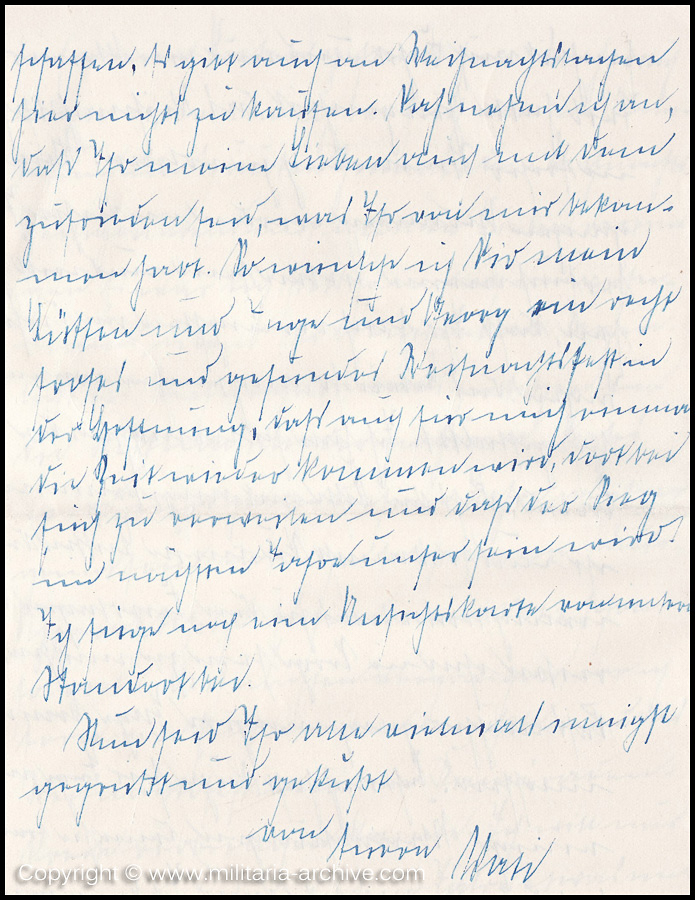 schaffen. Es gibt auch an Weihnachtssachen
hier nichts zu kaufen. Doch nehme ich an,
daß Ihr meine Lieben auch mit dem
zufrieden seid, was Ihr von mir bekom-
men habt. So wünsche ich Dir mein
und Inge und Georg ein recht
frohes und gesundes Weihnachtsfest in
der Hoffnung, daß auch für mich einma
die Zeit wieder kommen wird, dort bei
Euch zu verweilen und daß der Sieg
im nächsten Jahre unser sein wird!
Ich füge noch eine Ansichtskarte von unserm
Standort bei.
Nun seid Ihr alle vielmals innigst
gegrüßt und geküßt
von Eurem Vati
Copyright © www.militaria-archive.com